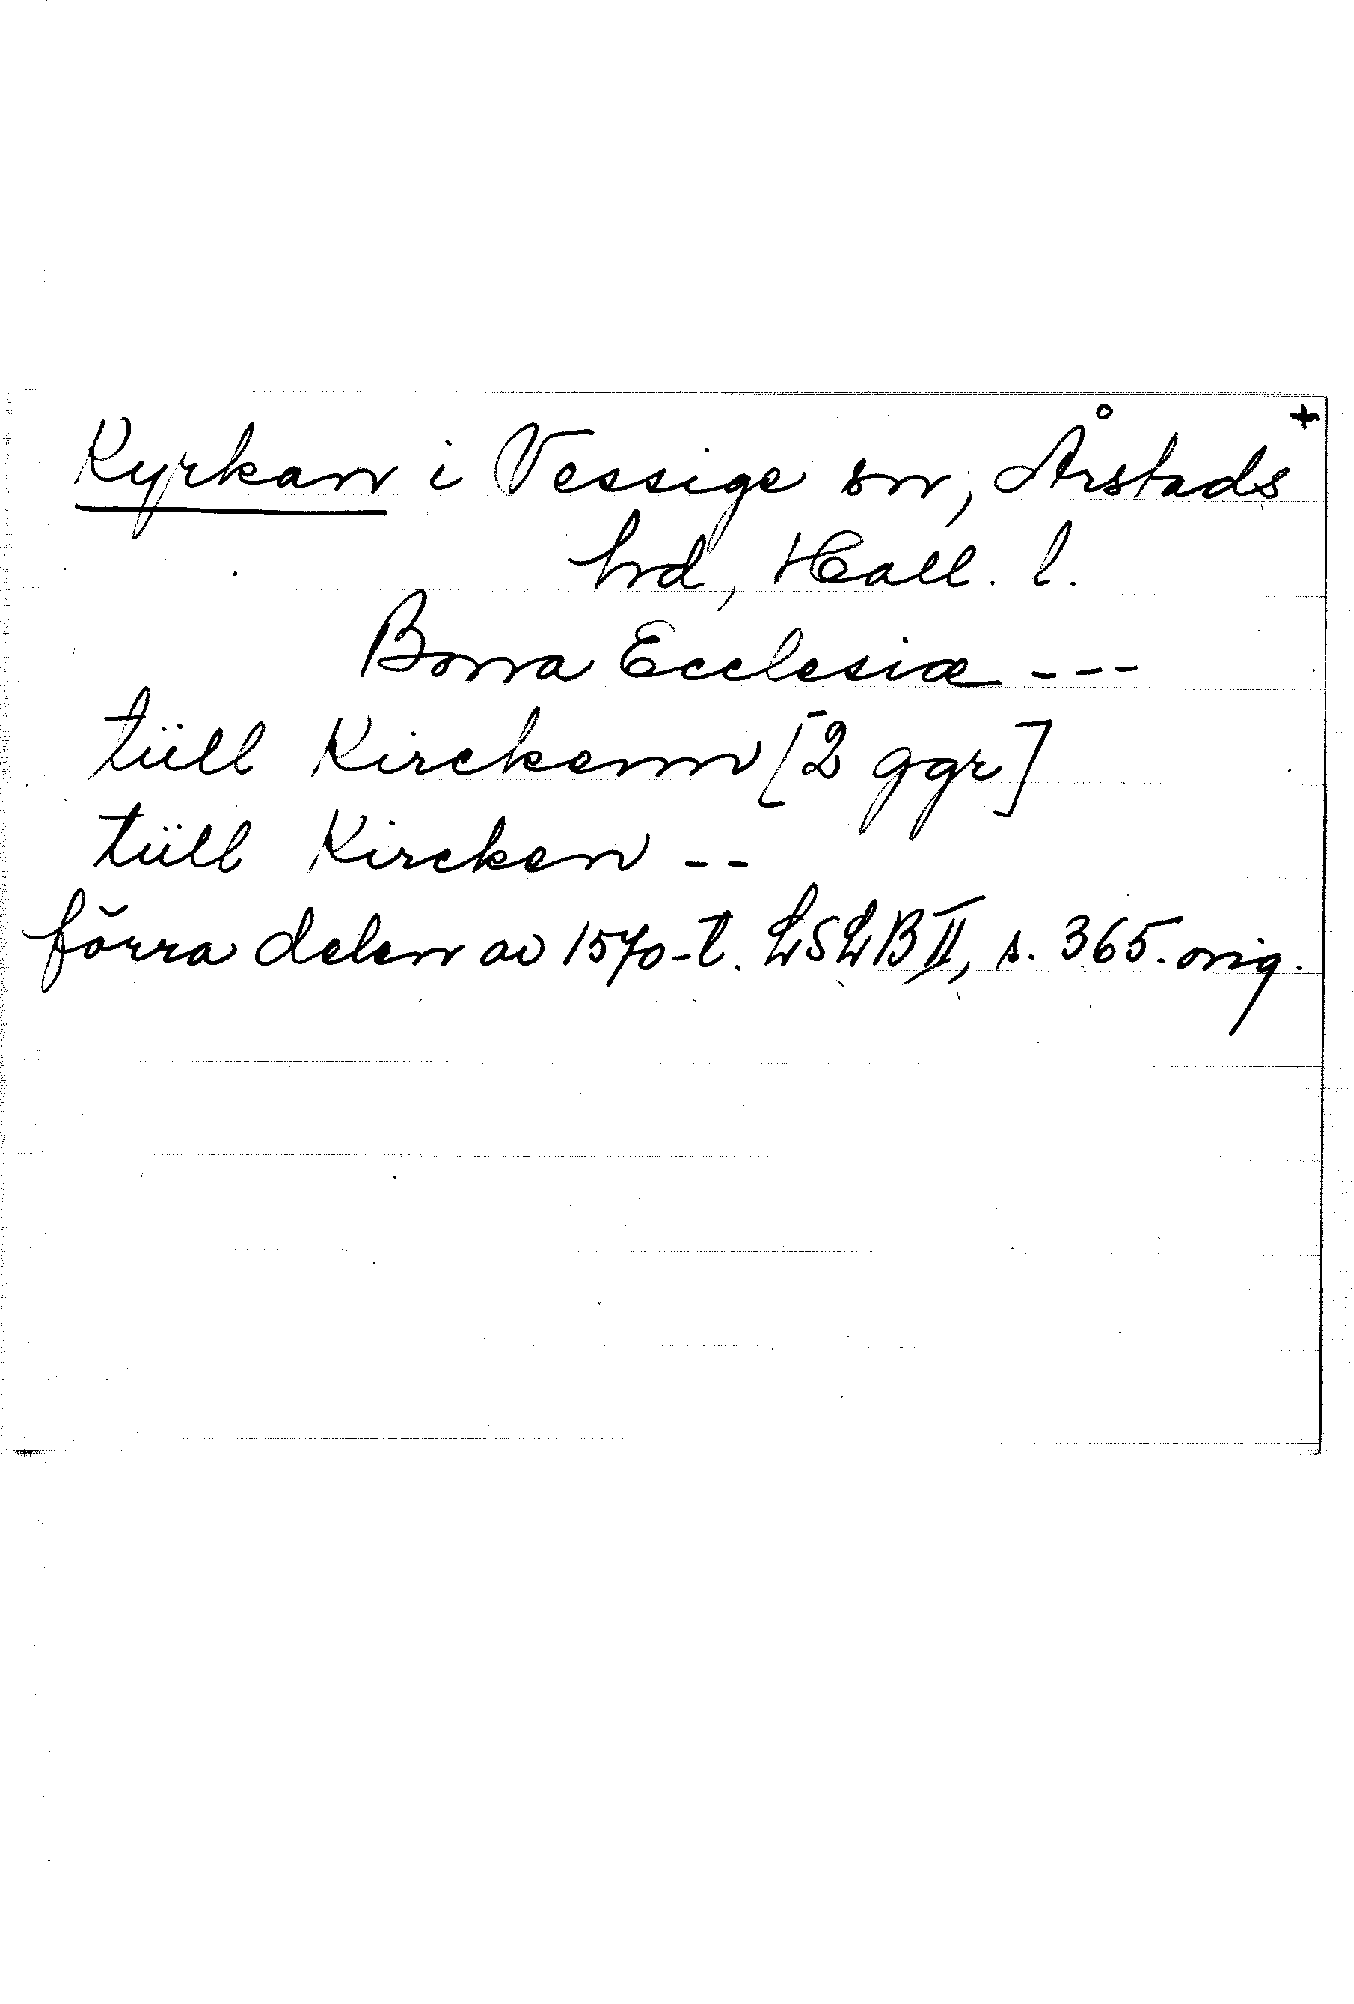 +
Kyrkan i Vessige sn, Årstads
hd, Hall. l.
Bona Ecclesiæ ---
tüll Kirckenn [2 ggr]
tüll Kircken --
förra delen av 1570-t. LSLB II, s. 365. orig.